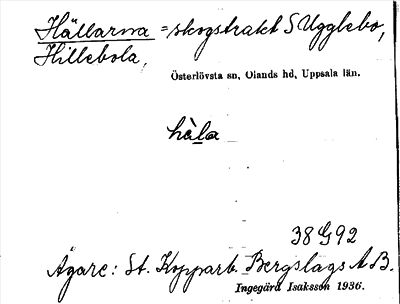 Hällarna = skogstrakt S Ugglebo,
Hillebola,
Österlövsta sn, Olands hd, Uppsala län.
hàla
38 G 92
Ägare: St. Kopparb. Bergslags A.B.
Ingegärd Isaksson 1936.